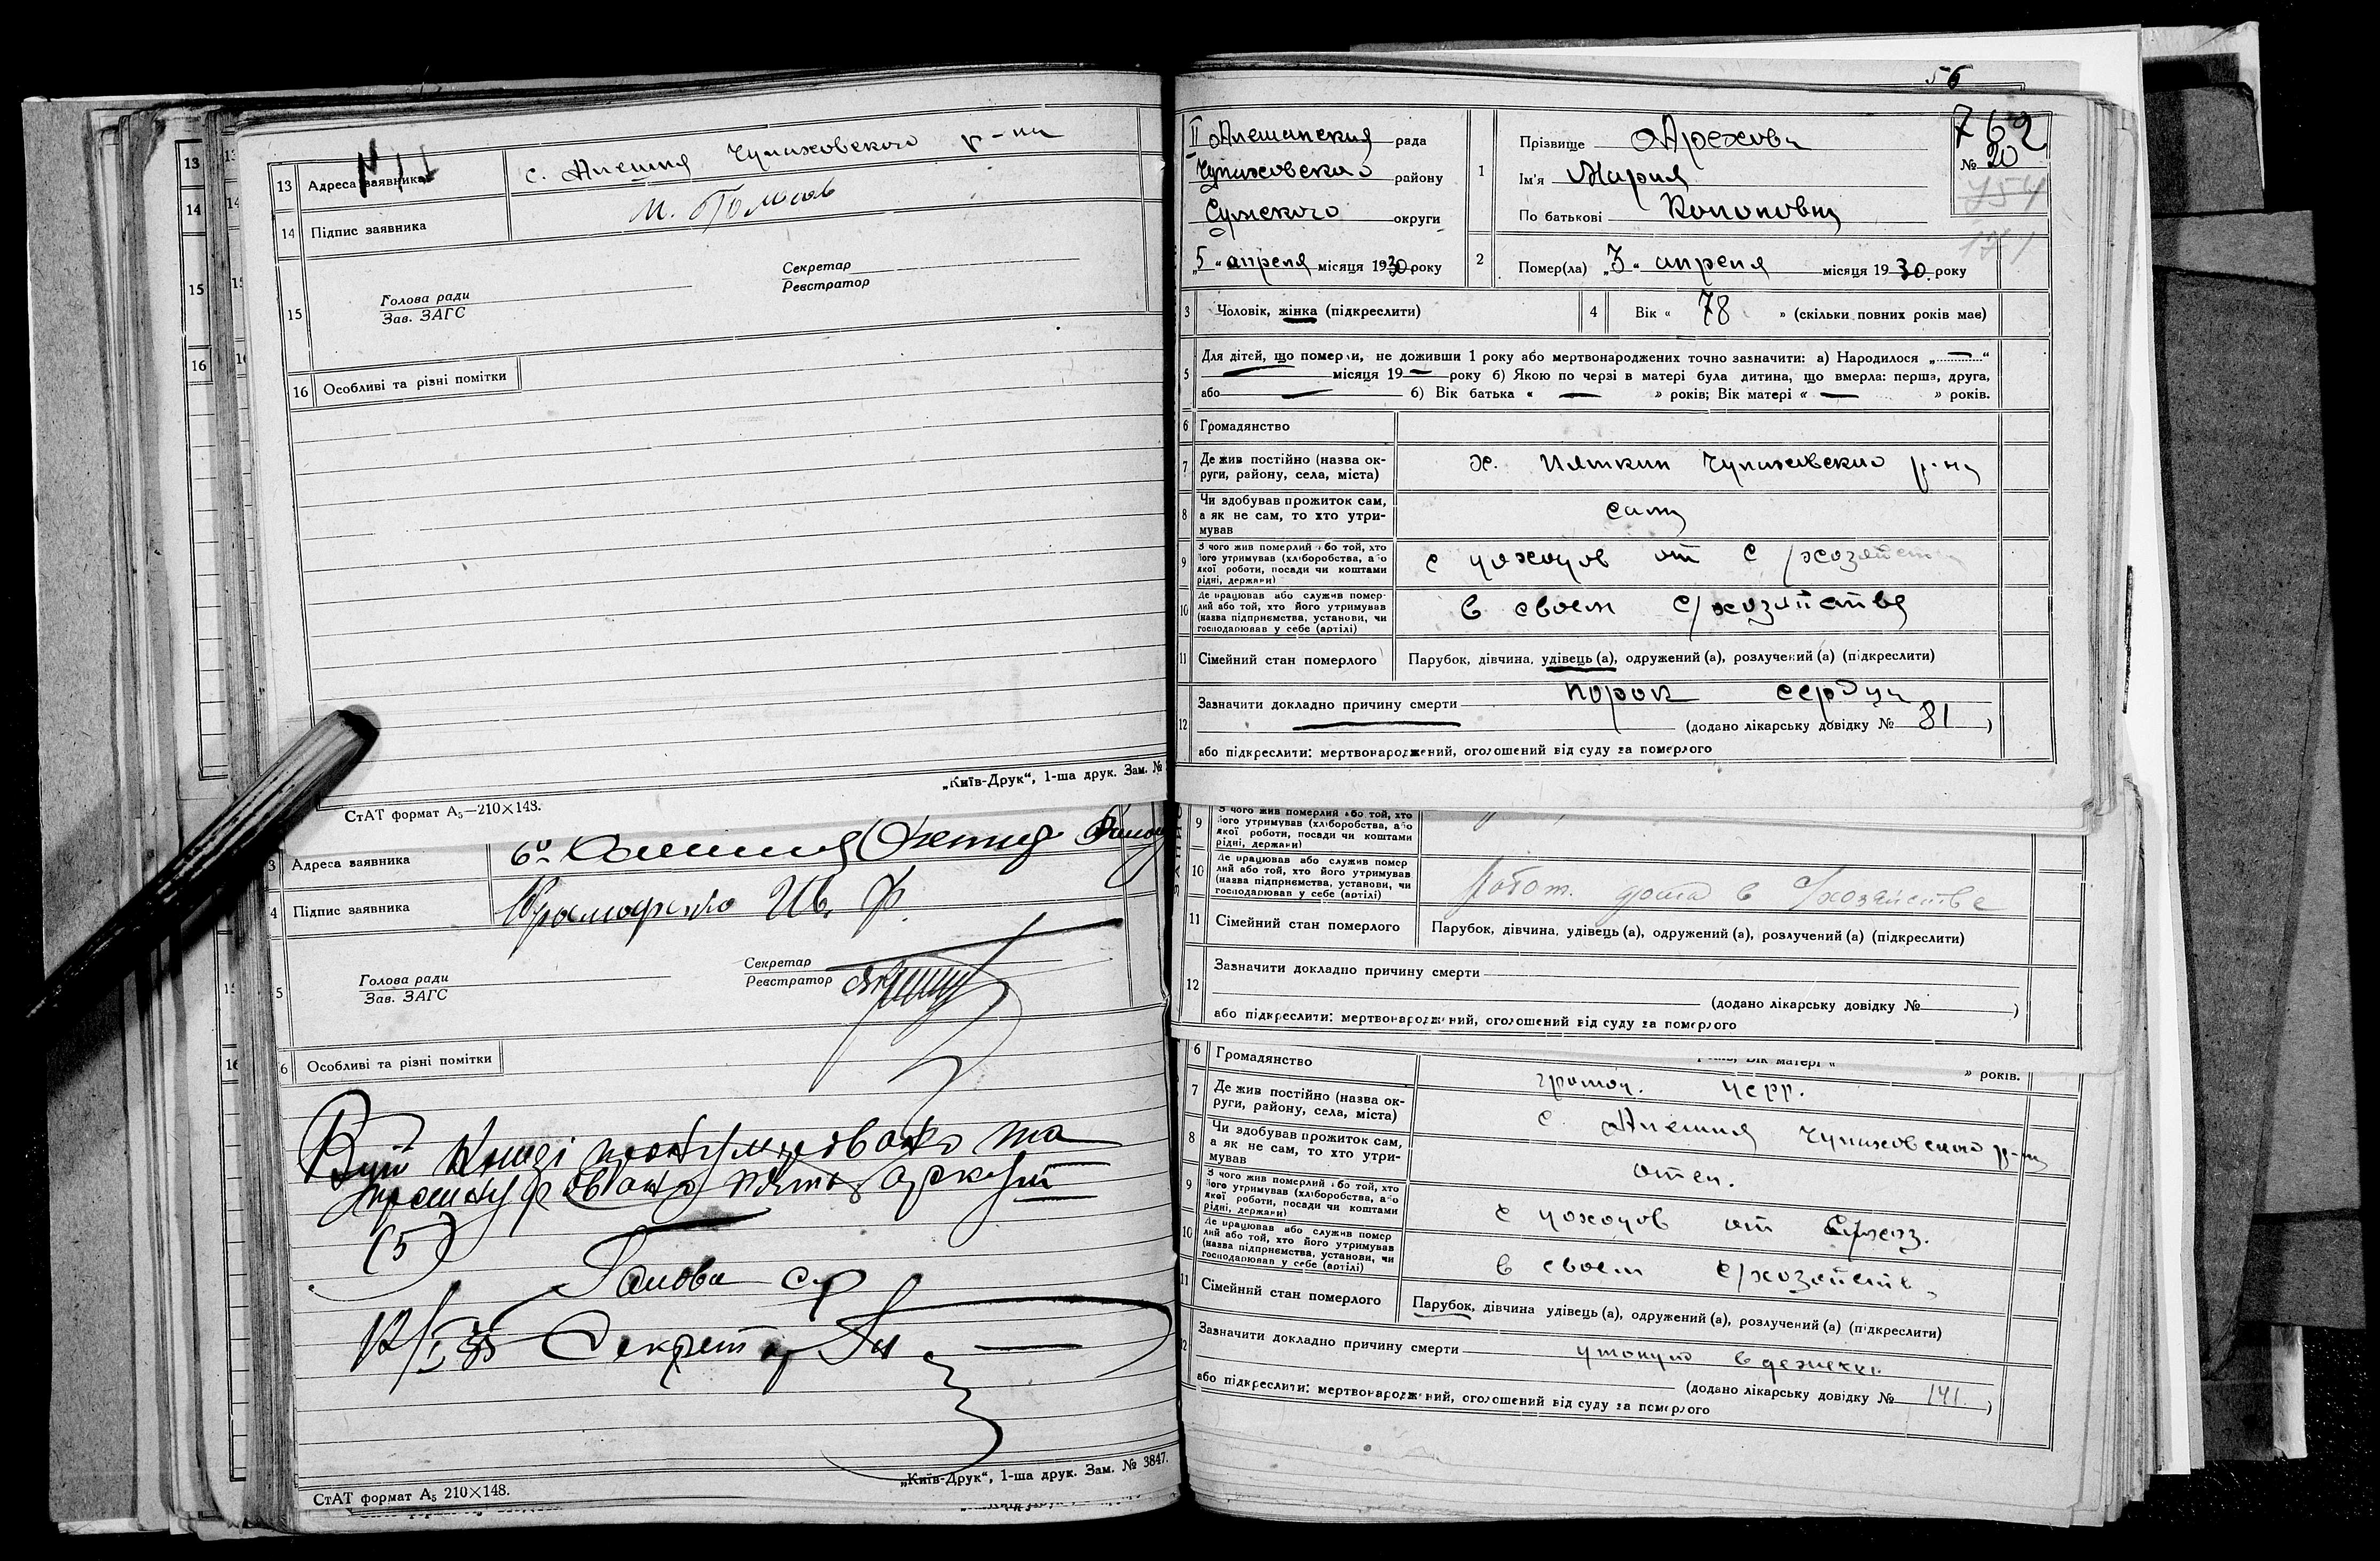 13 Адреса заявника с. Алешня Чупаховского р-на
14 Підпис заявника
15 Голова ради
Зав. ЗАГС
Секретар
Реєстратор
16 Особливі та різні помітки
СтАТ формат А₅—210×148.
„Київ-Друк“, 1-ша друк. Зам. №
Адреса заявника
Підпис заявника
Голова ради
Зав. ЗАГС
Секретар
Реєстратор
6 Особливі та різні помітки
(5)
Голова с/р
Секретар
СтАТ формат А₅ 210×148.
„Київ-Друк“, 1-ша друк. Зам. № 3847.
56
II Алешанская рада
Чупаховского району
Сумского округи
„5“ апреля місяця 1930 року
1 Прізвище Орехова
Ім'я Мария
По батькові Кононовна
762
№ 20
754
2 Помер(ла) „3“ апреля місяця 1930 року
3 Чоловік, жінка (підкреслити)
4 Вік « 78 » (скільки повних років має)
5 Для дітей, що померли, не доживши 1 року або мертвонароджених точно зазначити: а) Народилося „ — “
— місяця 19 — року б) Якою по черзі в матері була дитина, що вмерла: перша, друга,
або — б) Вік батька « — » років; Вік матері « — » років.
6 Громадянство
7 Де жив постійно (назва округи, району, села, міста) х. Пяткин Чупаховского р-на
8 Чи здобував прожиток сам, а як не сам, то хто утримував сама
9 З чого жив померлий або той, хто його утримував (хліборобства, або якої роботи, посади чи коштами рідні, держави) с доходов от с/хозяйства
10 Де працював або служив померлий або той, хто його утримував (назва підприємства, установи, чи господарював у себе (артілі) в своем с/хозяйстве
11 Сімейний стан померлого Парубок, дівчина, удівець (а), одружений (а), розлучений (а) (підкреслити)
12 Зазначити докладно причину смерти порок сердца
(додано лікарську довідку № 81 )
або підкреслити: мертвонароджений, оголошений від суду за померлого
9 З чого жив померлий або той, хто його утримував (хліборобства, або якої роботи, посади чи коштами рідні, держави)
10 Де працював або служив померлий або той, хто його утримував (назва підприємства, установи, чи господарював у себе (артілі) работ. дома в с/хозяйстве
11 Сімейний стан померлого Парубок, дівчина, удівець (а), одружений (а), розлучений (а) (підкреслити)
12 Зазначити докладно причину смерти
(додано лікарську довідку № )
або підкреслити: мертвонароджений, оголошений від суду за померлого
» років.
6 Громадянство
7 Де жив постійно (назва округи, району, села, міста) с. Алешня Чупаховского р-на
8 Чи здобував прожиток сам, а як не сам, то хто утримував отец.
9 З чого жив померлий або той, хто його утримував (хліборобства, або якої роботи, посади чи коштами рідні, держави) с доходов от с/хоз.
10 Де працював або служив померлий або той, хто його утримував (назва підприємства, установи, чи господарював у себе (артілі) в своем с/хозяйств.
11 Сімейний стан померлого Парубок, дівчина удівець (а), одружений (а), розлучений (а) (підкреслити)
Зазначити докладно причину смерти утонул в
(додано лікарську довідку № 141. )
або підкреслити: мертвонароджений, оголошений від суду за померлого